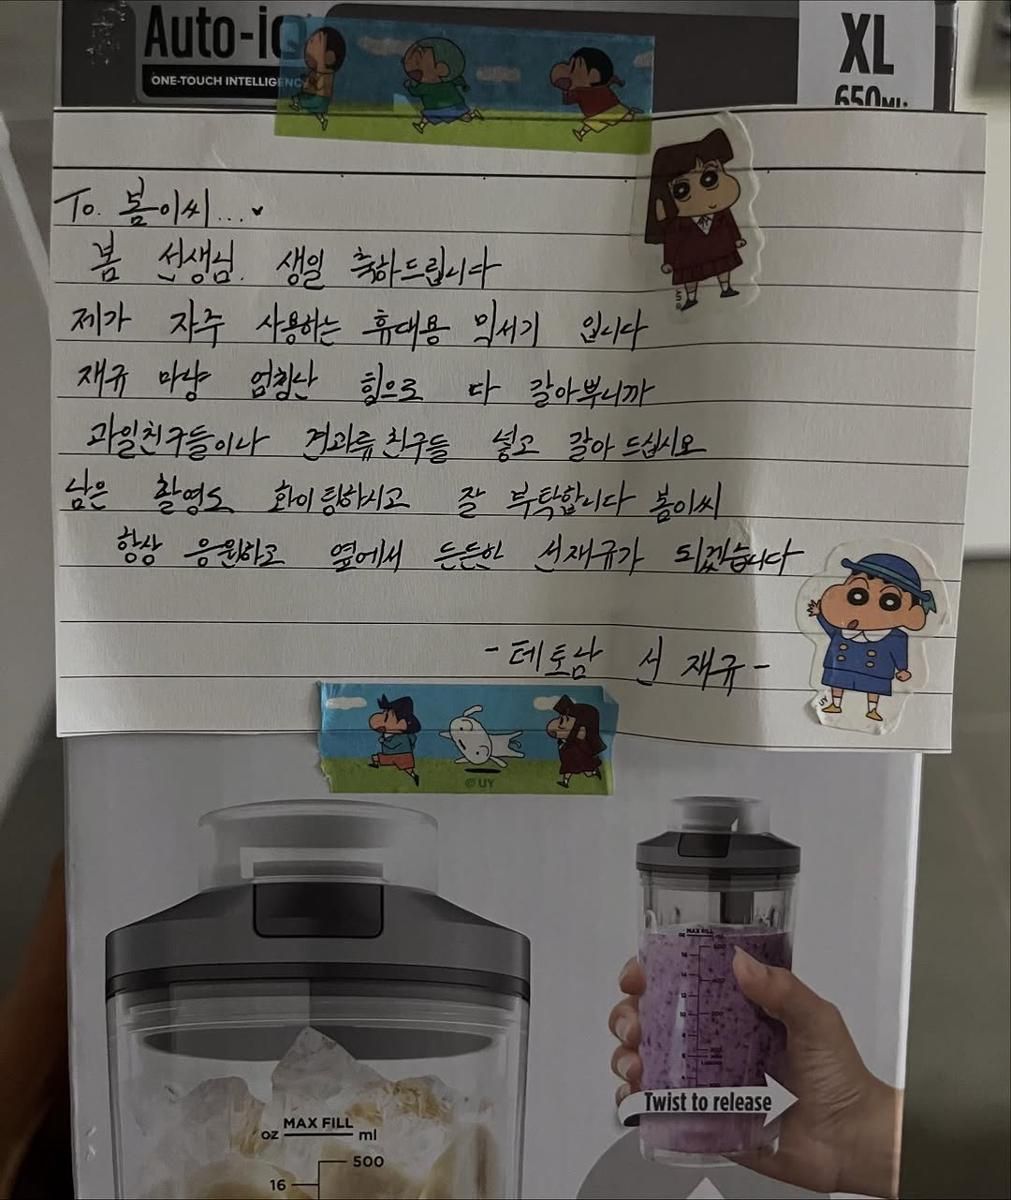 Auto-iQ
ONE-TOUCH INTELLIGENC
XL
650ML
To. 봄이씨...♥
봄 선생님. 생일 축하드립니다
제가 자주 사용하는 휴대용 믹서기 입니다
재규 마냥 엄청난 힘으로 다 갈아뿌니까
과일친구들이나 견과류친구들 넣고 갈아 드십시오
남은 촬영도 화이팅하시고 잘 부탁합니다 봄이씨
항상 응원하고 옆에서 든든한 선재규가 되겠습니다
-테토남 선 재규-
UY
UY
© UY
MAX FILL
oz ml
500
16
MAX FILL
Twist to release